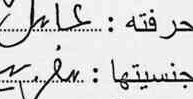 حرفته : عامل
جنسيتها :